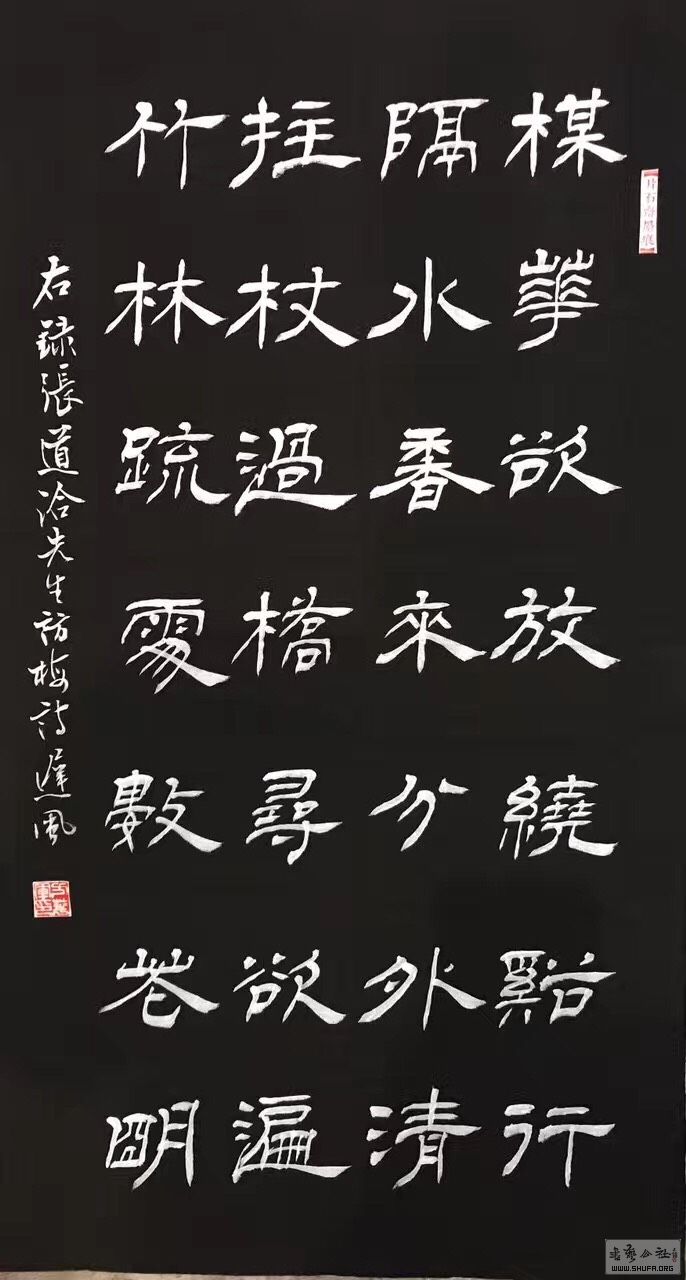 楳華欲放繞谿行
隔水香來分外清
拄杖過橋尋欲遍
竹林疏處數花明
右録張道洽先生訪梅詩遲風
書藝公社
WWW.SHUFA.ORG